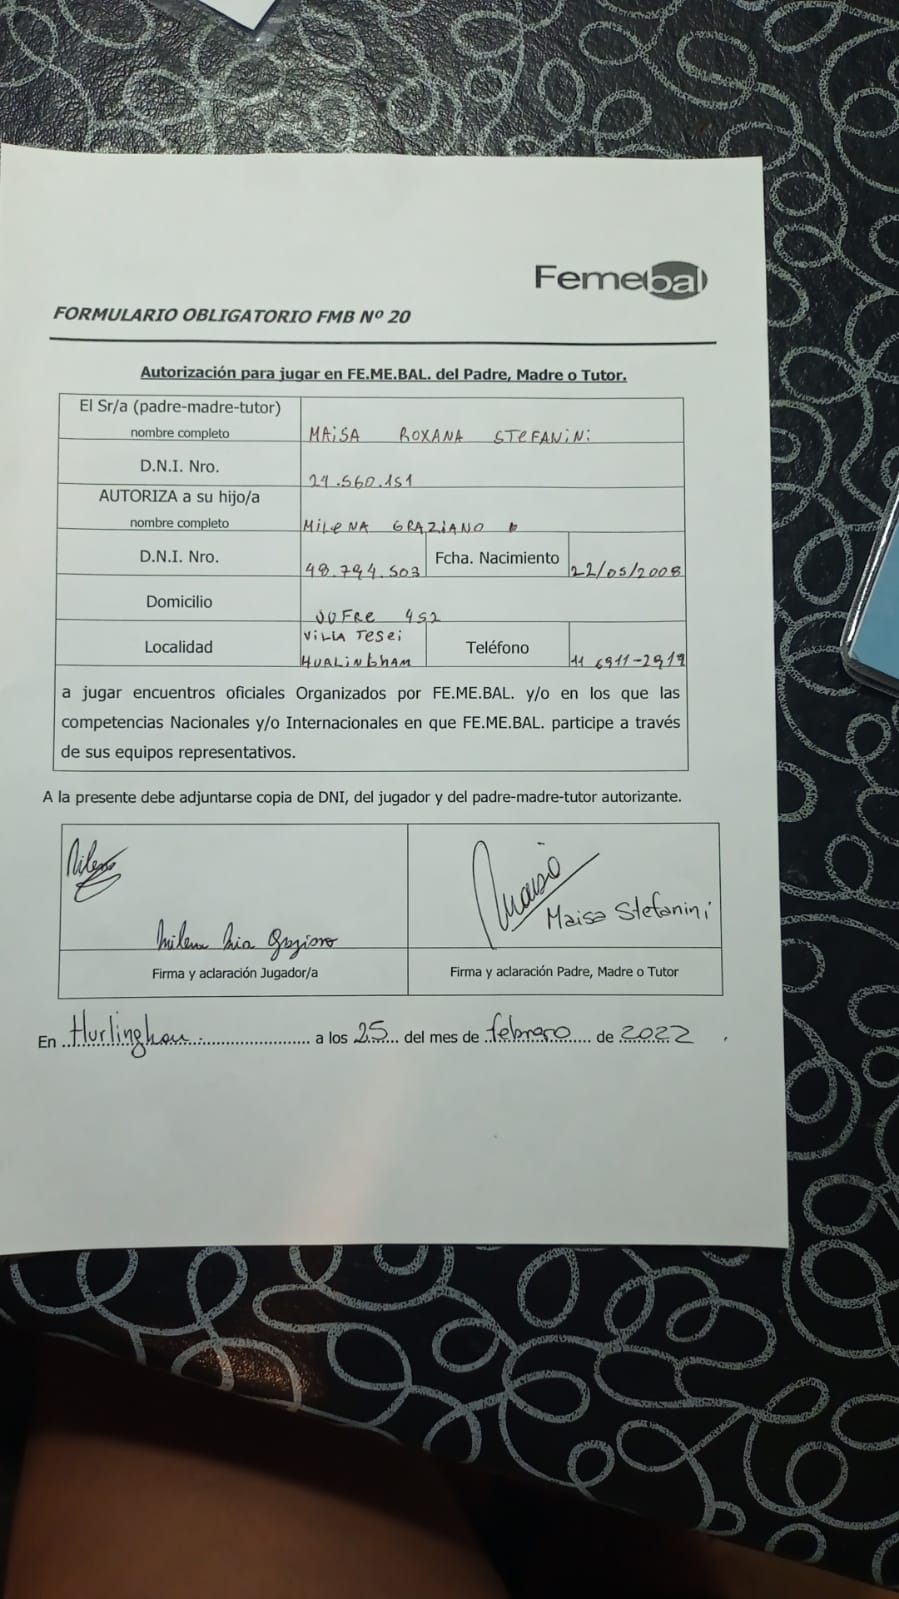 Femebal
FORMULARIO OBLIGATORIO FMB Nº 20
Autorización para jugar en FE.ME.BAL. del Padre, Madre o Tutor.
El Sr/a (padre-madre-tutor)
nombre completo
MAiSA ROXANA STEFANiNi
D.N.I. Nro.
AUTORIZA a su hijo/a
nombre completo
MiLeNA GRAZiANO
D.N.I. Nro.
48.794.503
Fcha. Nacimiento
22/05/2008
Domicilio
JUFRe 452
Localidad
ViLLA Tesei
HURLiNGHAM
Teléfono
11 6911-2919
a jugar encuentros oficiales Organizados por FE.ME.BAL. y/o en los que las
competencias Nacionales y/o Internacionales en que FE.ME.BAL. participe a través
de sus equipos representativos.
A la presente debe adjuntarse copia de DNI, del jugador y del padre-madre-tutor autorizante.
Milena
Maisa
Maisa Stefanini
Milena Mia Graziano
Firma y aclaración Jugador/a
Firma y aclaración Padre, Madre o Tutor
En Hurlingham a los 25 del mes de febrero de 2022